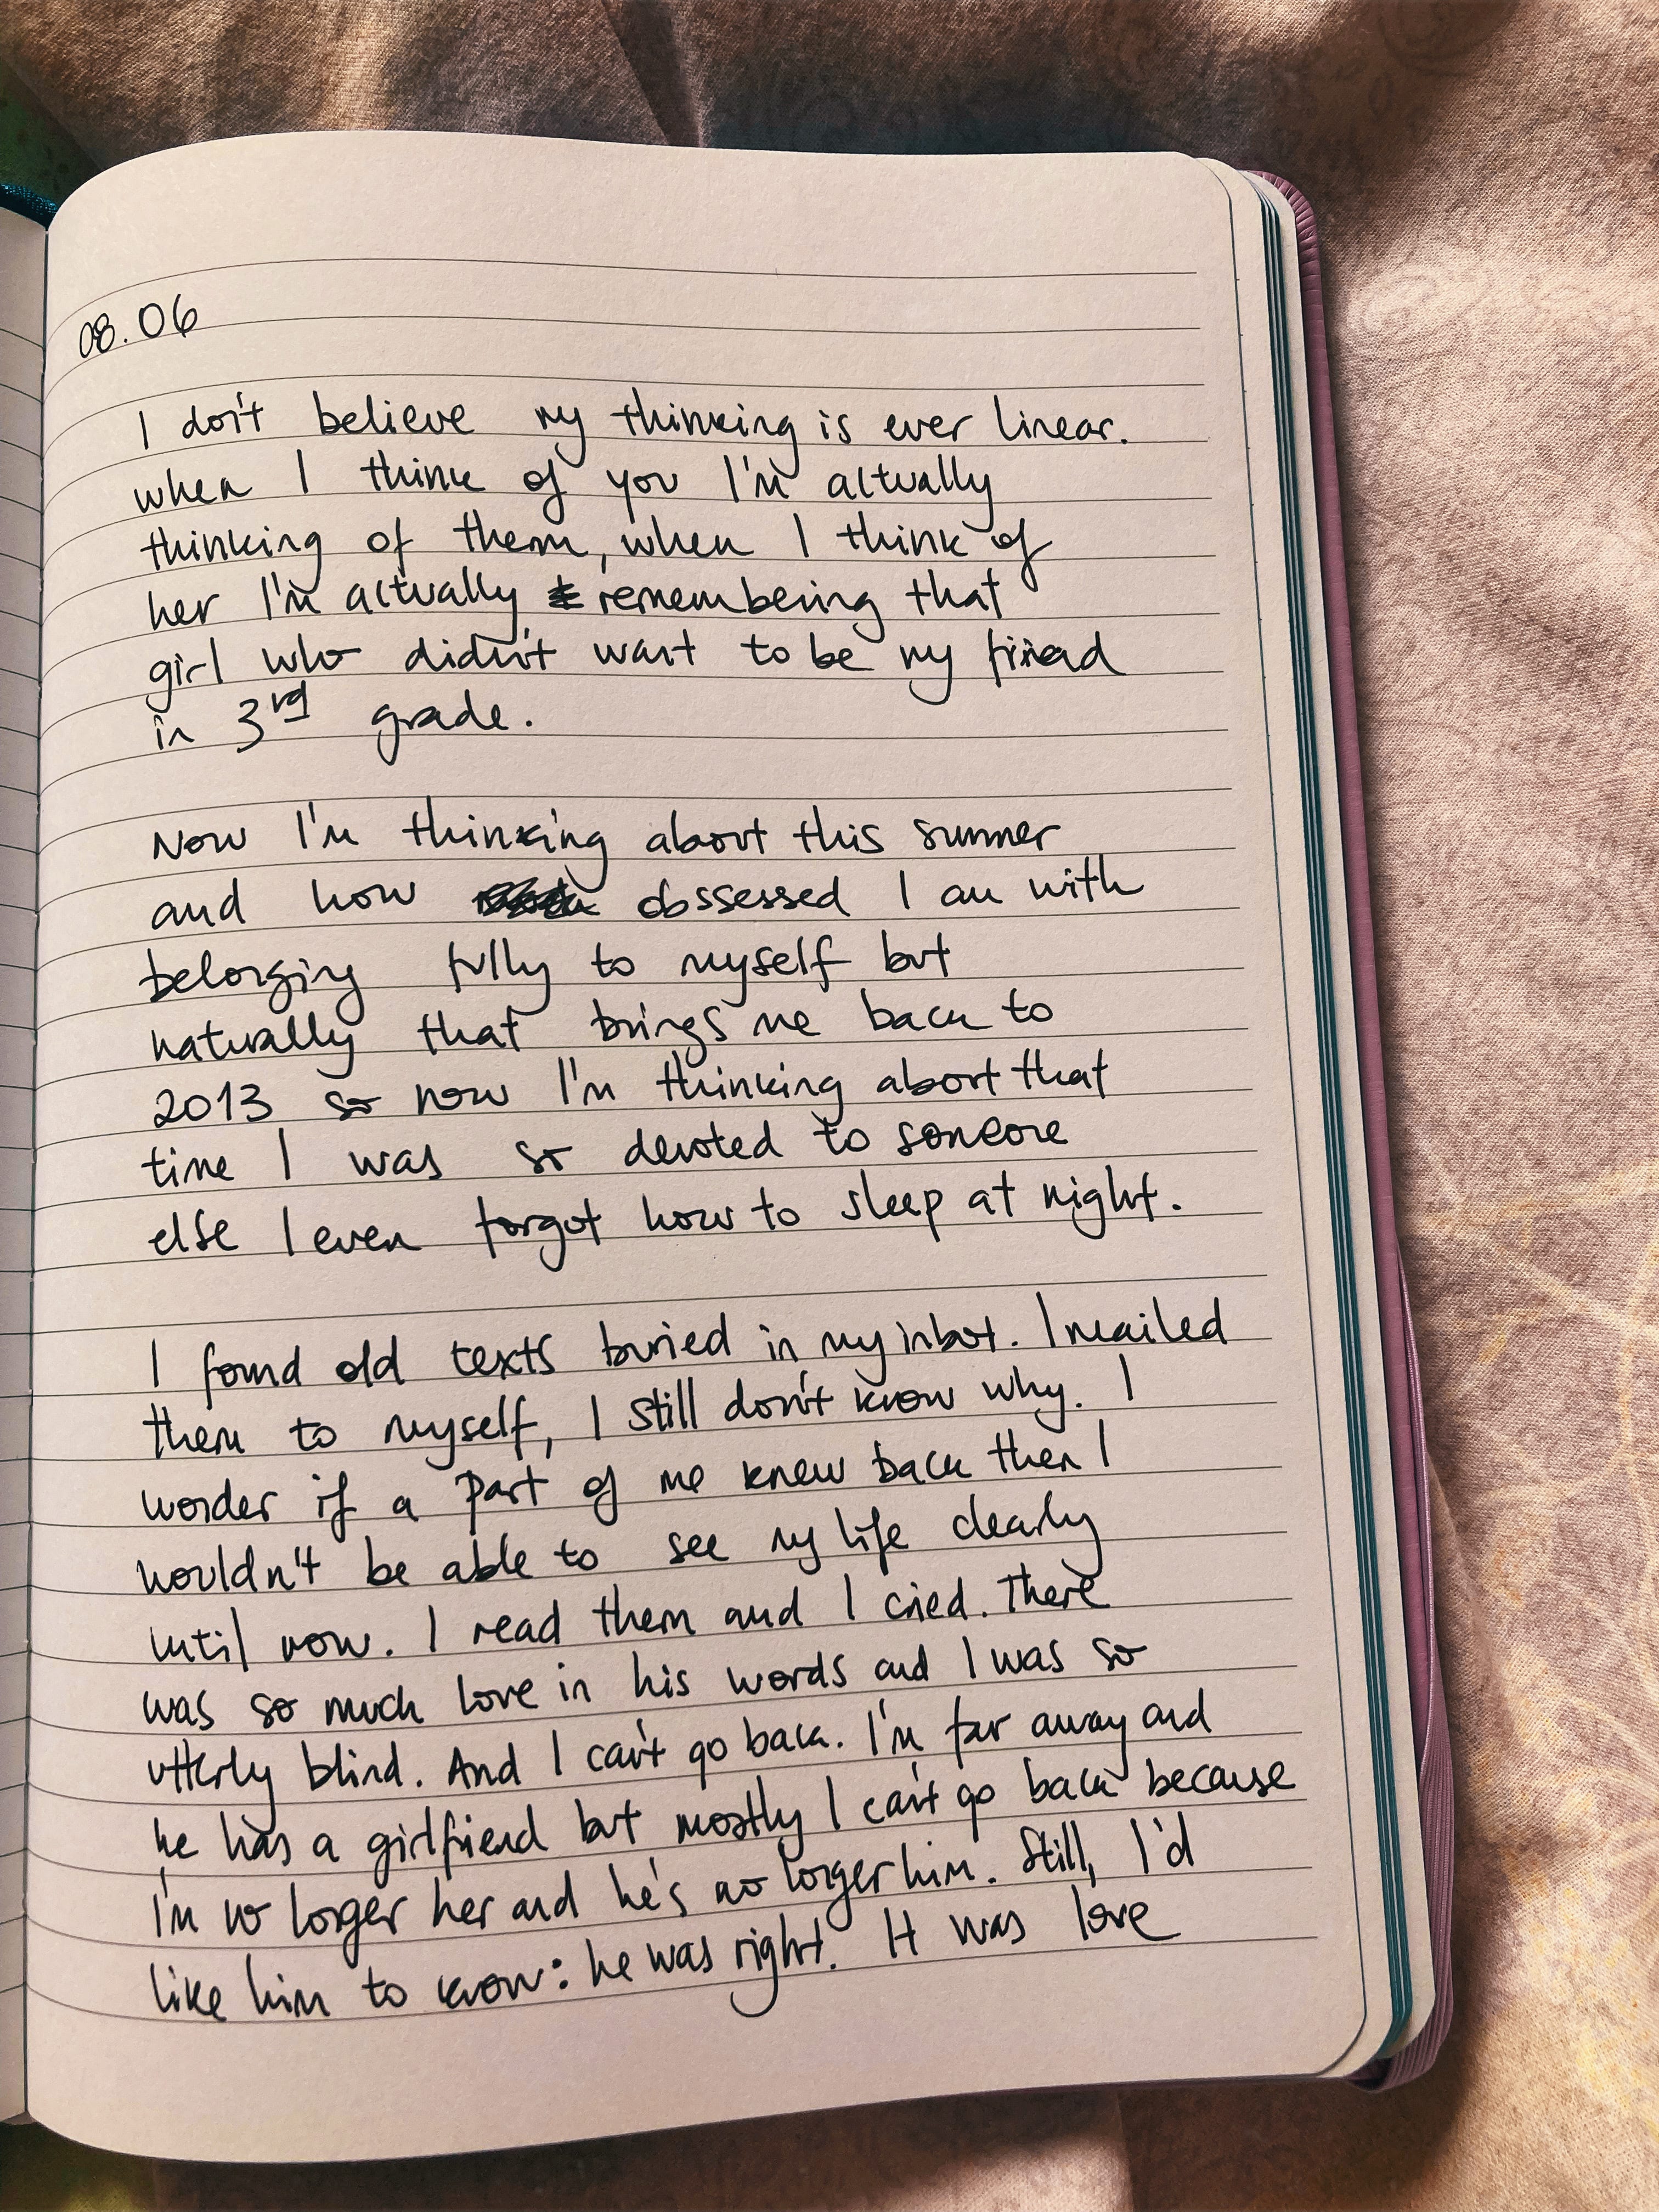 08.06
I don't believe my thinking is ever linear.
when I think of you I'm actually
thinking of them, when I think of
her I'm actually remembering that
girl who didn't want to be my friend
in 3rd grade.
Now I'm thinking about this summer
and how obssessed I am with
belonging fully to myself but
naturally that brings me back to
2013 so now I'm thinking about that
time I was so devoted to someone
else I even forgot how to sleep at night.
I found old texts buried in my inbox. I mailed
them to myself, I still don't know why. I
wonder if a part of me knew back then I
wouldn't be able to see my life clearly
until now. I read them and I cried. There
was so much love in his words and I was so
utterly blind. And I can't go back. I'm far away and
he has a girlfriend but mostly I can't go back because
I'm no longer her and he's no longer him. Still, I'd
like him to know: he was right. It was love